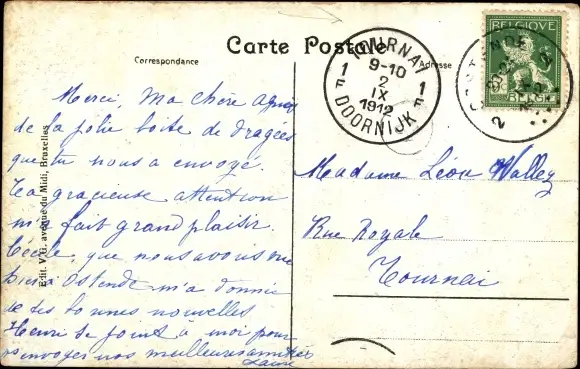 Carte Postale
Correspondance
Adresse
TOURNAI
9-10
2
IX
1912
1 F
1 F
DOORNIJK
BELGIQUE
BELGIË
Merci, ma chère Agnès
de la jolie boite de dragées
que tu nous a envoyé.
Ta gracieuse attention
m'a fait grand plaisir.
Cécile, que nous avons vue
hier à Ostende m'a donné
de tes bonnes nouvelles
Henri se joint à moi pour
vous envoyer nos meilleures amitiés
Madame Léon Wallez
Rue Royale
Tournai
Edit. V.G. avenue du Midi, Bruxelles